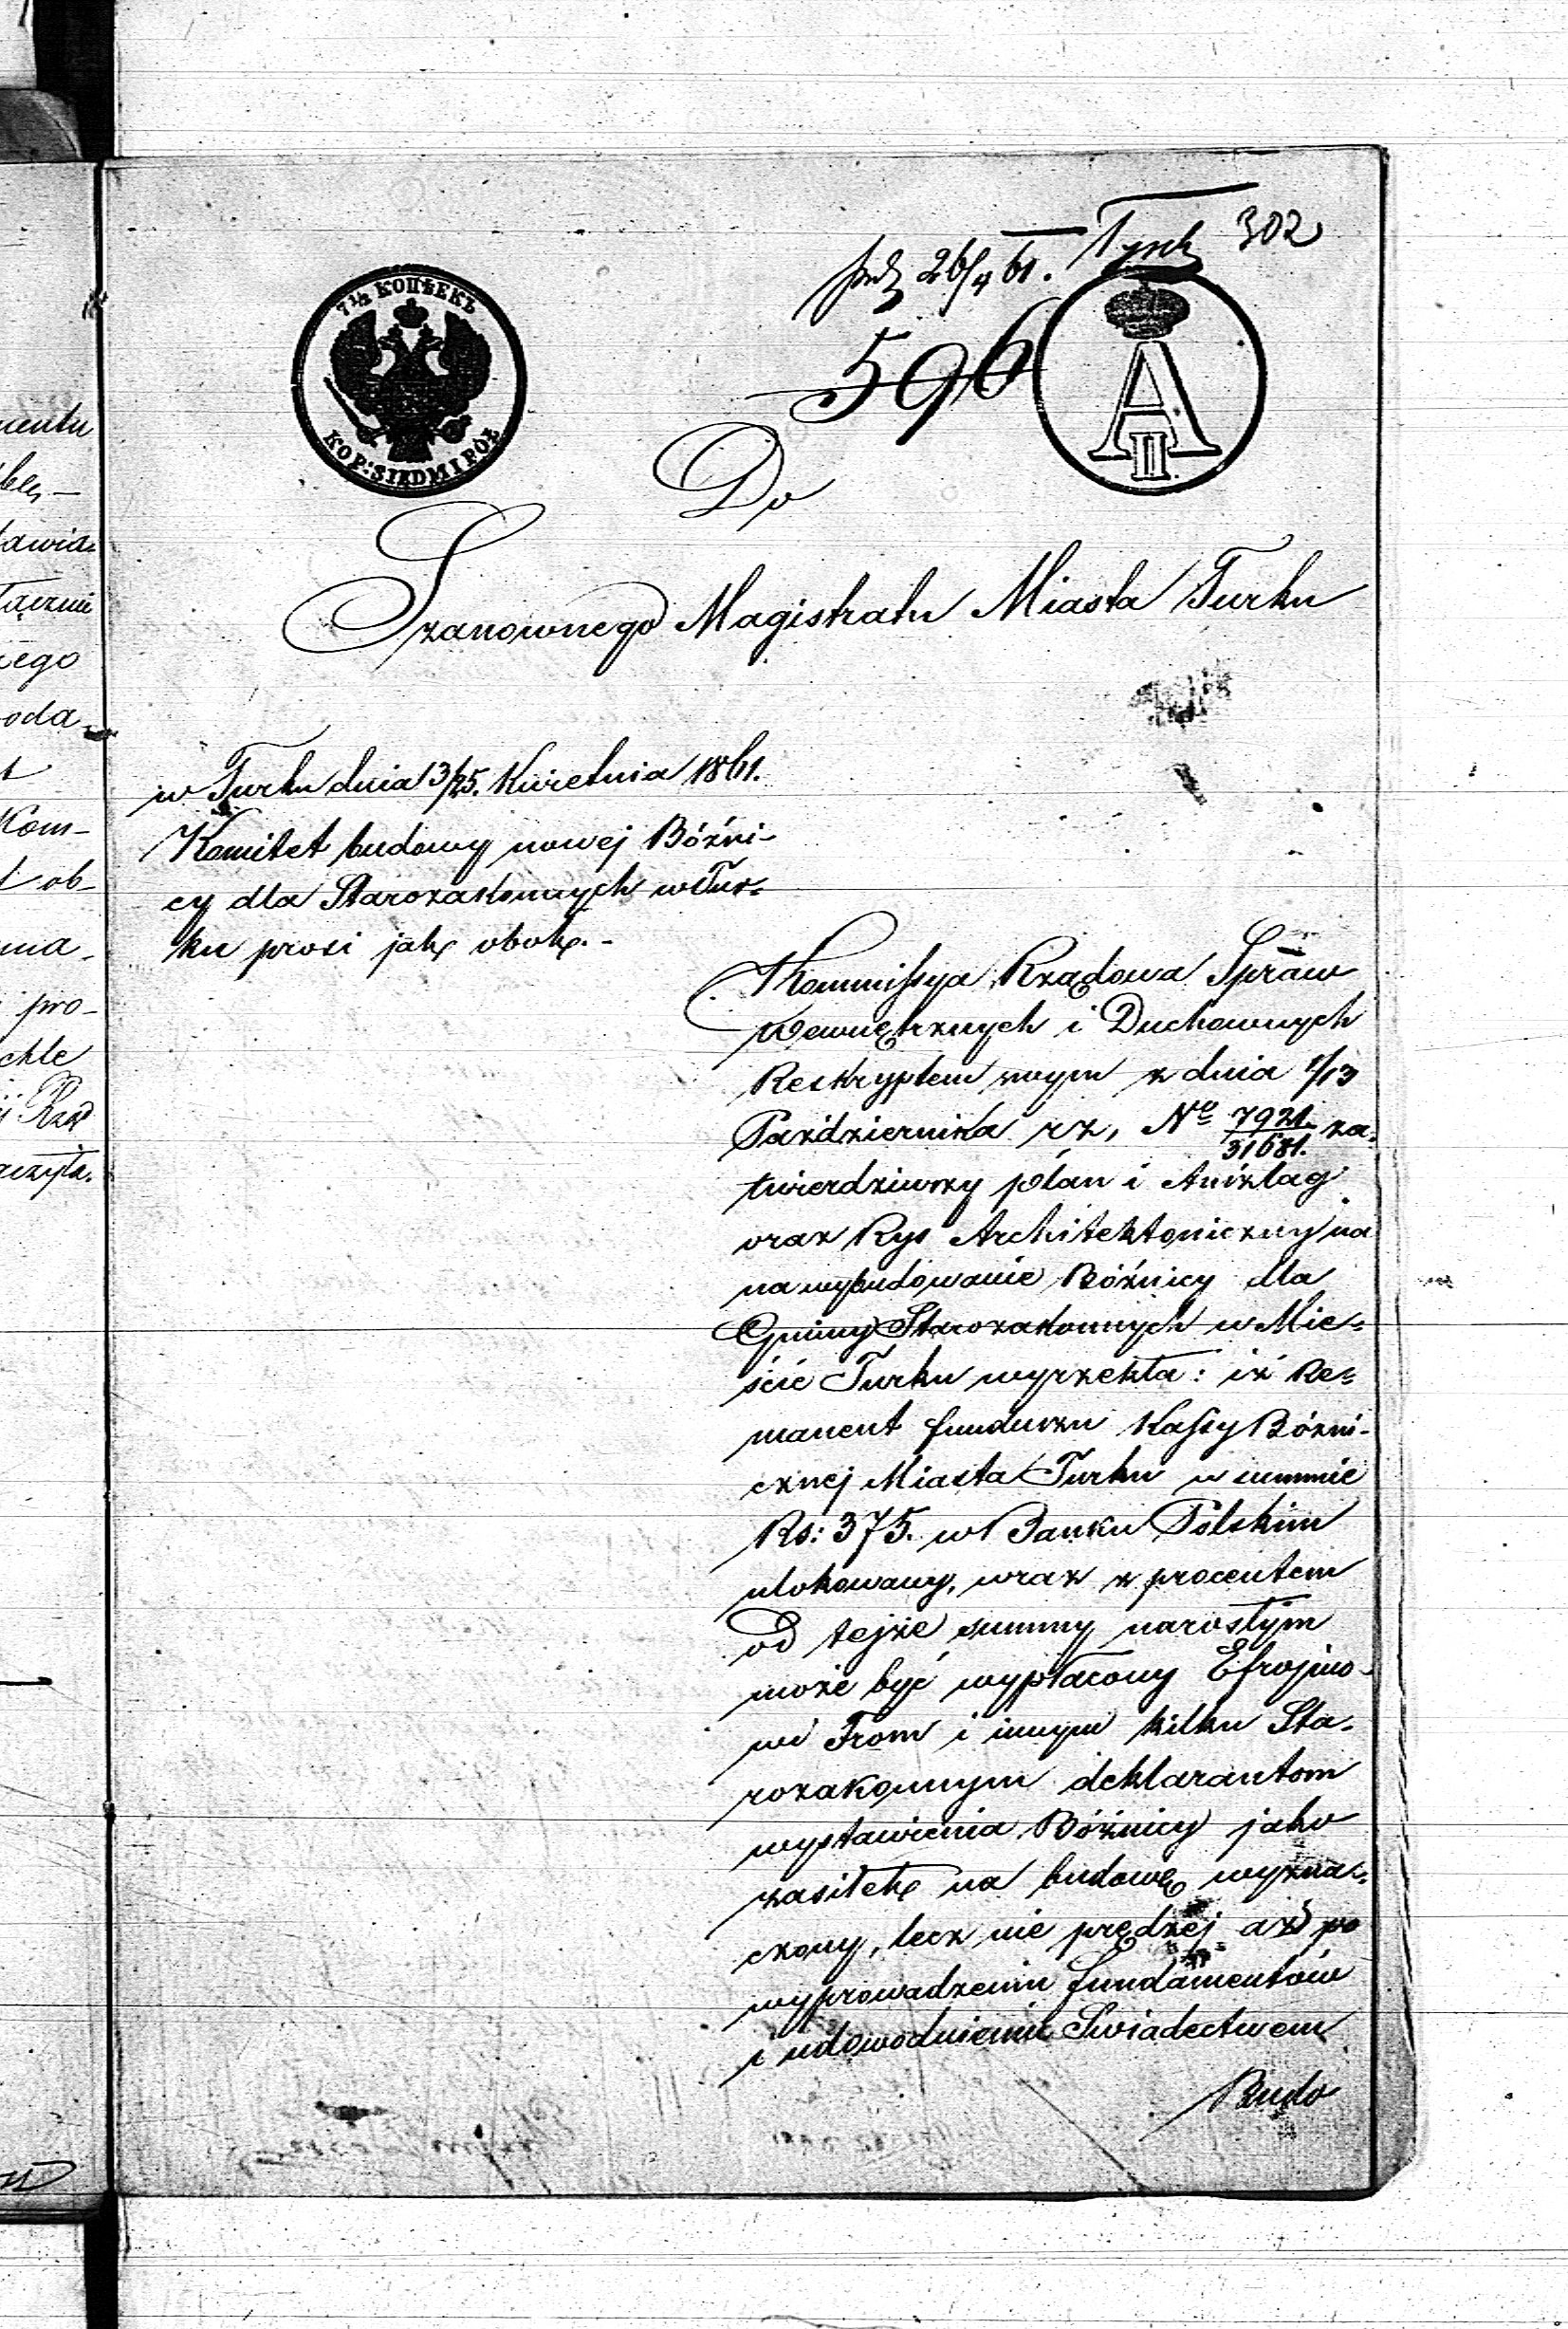 302
26/4 61.
596
7½ КОПѢЕКЪ
KOP: SIEDM I PÓŁ
A II
Do
Szanownego Magistratu Miasta Turku
w Turku dnia 13/25. Kwietnia 1861.
Komitet budowy nowej Bóźni-
cy dla Starozakonnych w Tur=
ku prosi jak obok.-
Kommissya Rządowa Spraw
Wewnętrznych i Duchownych
Reskryptem swym z dnia 1/13
Października rz, No 7921./31681. za=
twierdziwszy plan i Anszlag
oraz Rys Architektoniczny na
na wybudowanie Bóźnicy dla
Gminy Starozakonnych w Mie=
ście Turku wyrzekła: iż Re=
manent funduszu Kassy Bóżni-
cznej Miasta Turku w summie
Rs: 375. w Banku Polskim
ulokowany, wraz z procentem
od tejże summy narosłym
może być wypłacony Efrojmo-
wi From i innym kilku Sta-
rozakonnym deklarantom
wystawienia Bóźnicy jako
zasiłek na budowę wyzna=
czony, lecz nie prędzej aż po
wyprowadzeniu fundamentów
i udowodnieniu Swiadectwem
Budo
mentu
awia=
iego
oda
Kom-
ob-
pro-